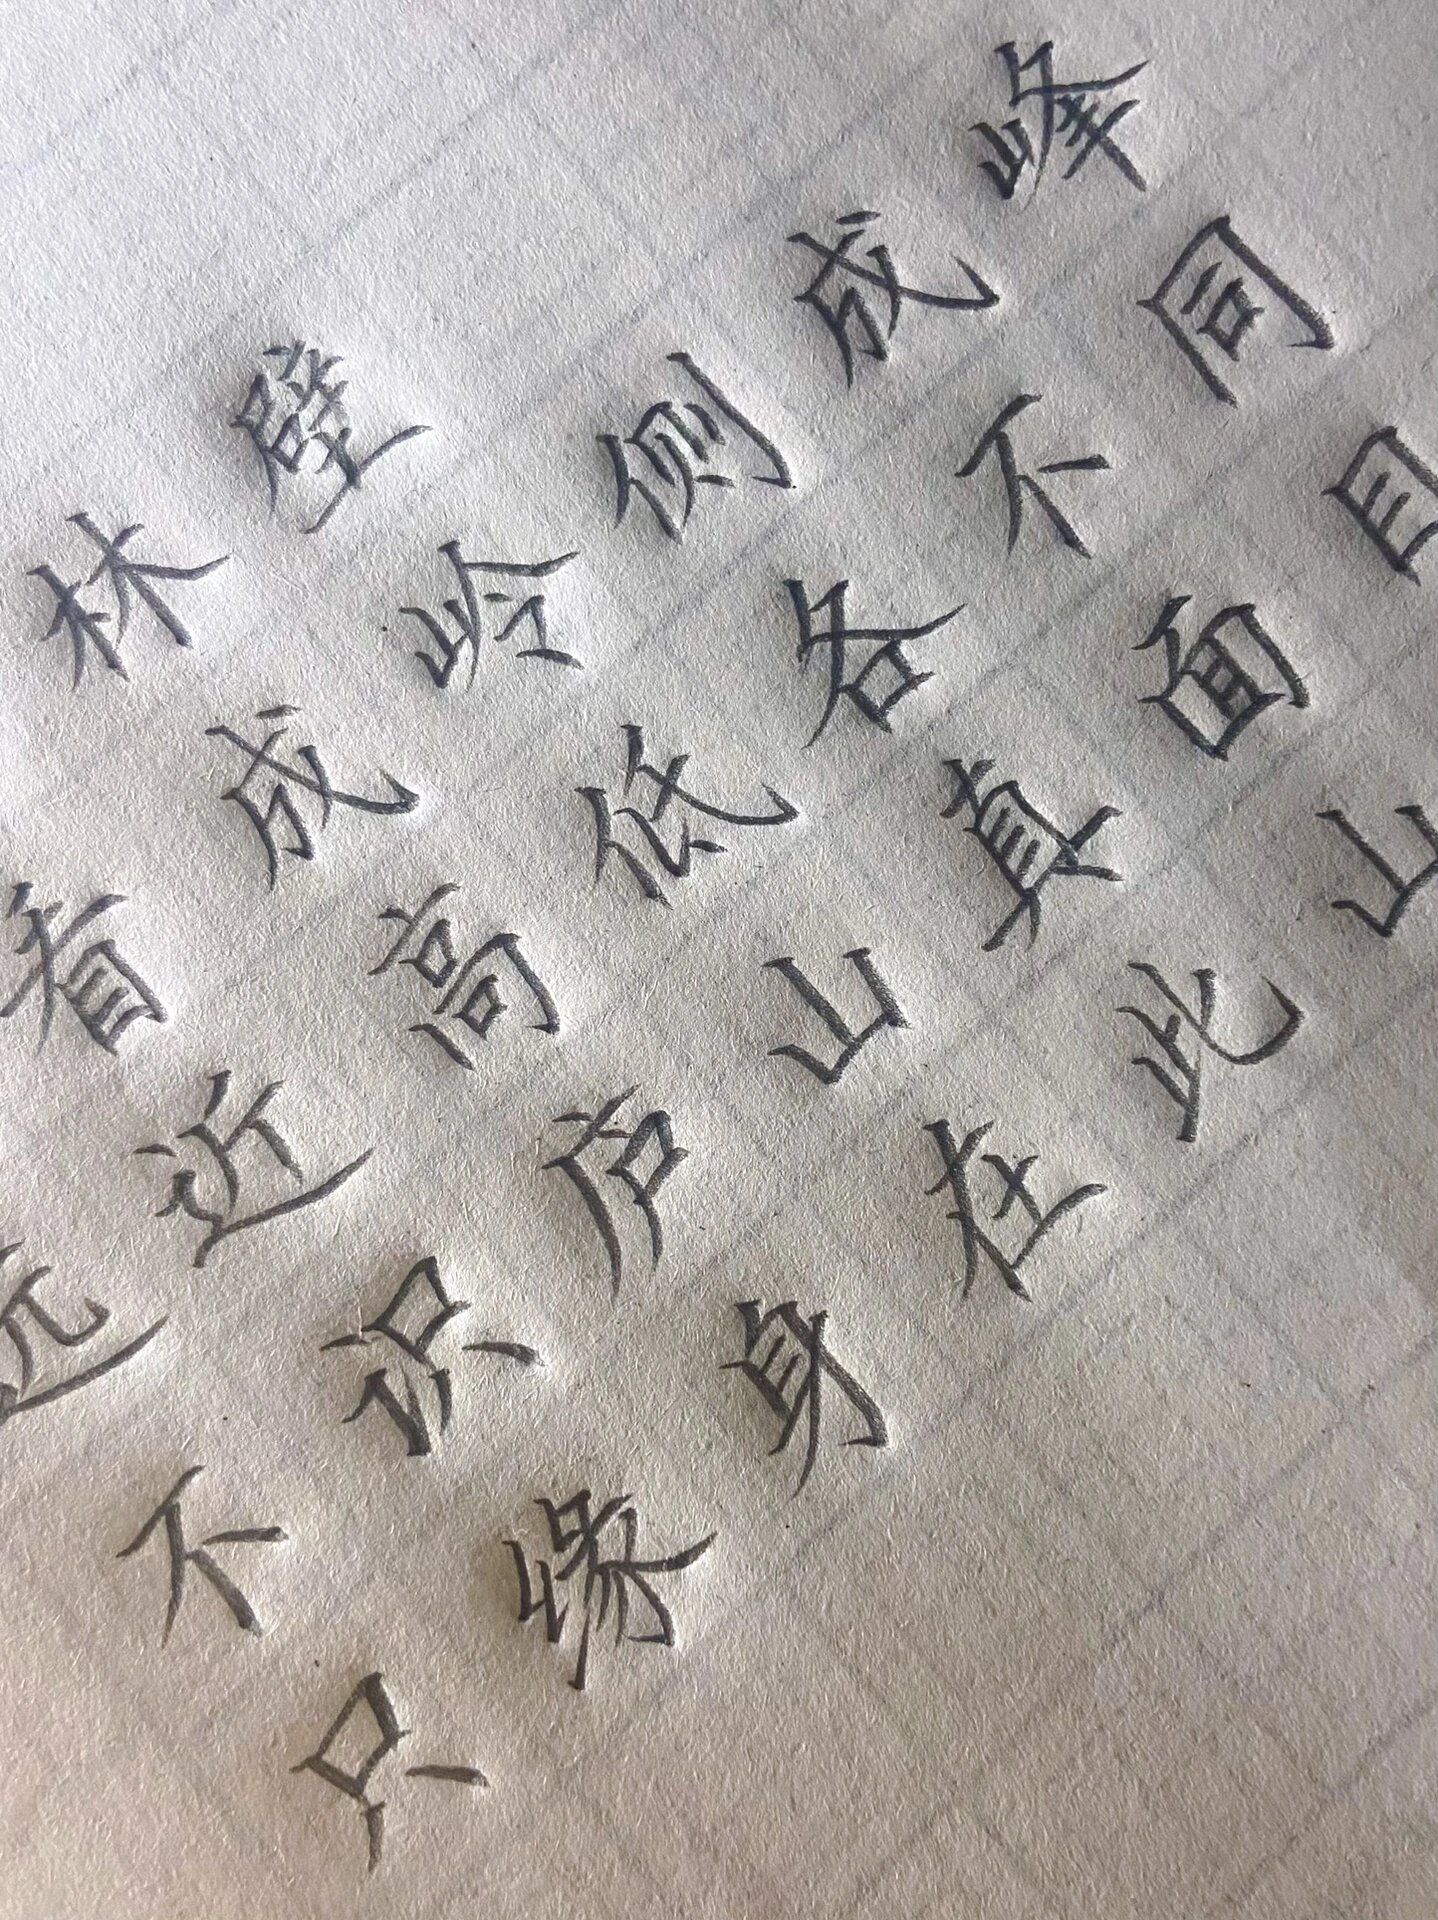 林壁
看成岭侧成峰
远近高低各不同
不识庐山真面目
只缘身在此山